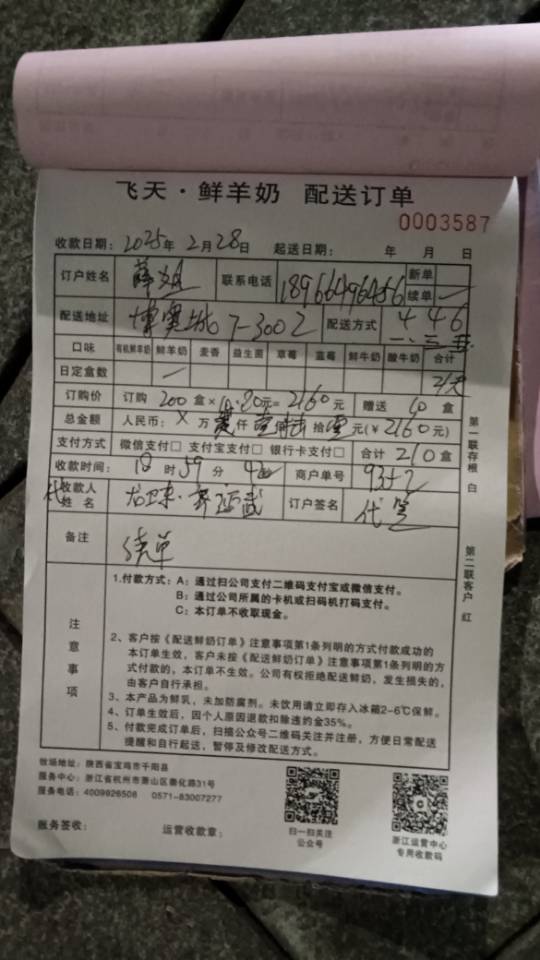 飞天·鲜羊奶 配送订单
0003587
收款日期：2025年 2月28日 起送日期： 年 月 日
订户姓名 薛姐 联系电话 18966496486 新单
续单
配送地址 博奥城7-3002 配送方式 4 4 6
一、三、五
口味 有机鲜羊奶 鲜羊奶 麦香 益生菌 草莓 蓝莓 鲜牛奶 酸牛奶 合计
日定盒数 一
订购价 订购 200 盒×10.80元=2160元 赠送 10 盒
总金额 人民币：X万 仟 佰 拾 元(￥2160元)
支付方式 微信支付□ 支付宝支付□ 银行卡支付□ 合计 210盒
收款时间： 18时59分 商户单号
代收款人
姓名 订户签名 代签
备注 续单
注意事项
1.付款方式：A：通过扫公司支付二维码支付宝或微信支付。
B：通过公司所属的卡机或扫码机打码支付。
C：本订单不收取现金。
2、客户按《配送鲜奶订单》注意事项第1条列明的方式付款成功的
本订单生效，客户未按《配送鲜奶订单》注意事项第1条列明的方
式付款的，本订单不生效。公司有权拒绝配送鲜奶，发生损失的，
由客户自行承担。
3、本产品为鲜乳，未加防腐剂。未饮用请立即存入冰箱2-6℃保鲜。
4、订单生效后，因个人原因退款扣除违约金35%。
5、付款完成订单后，扫描公众号二维码关注并注册，方便日常配送
提醒和自行起送，暂停及修改配送方式。
第一联存根 白
第二联客户 红
牧场地址：陕西省宝鸡市千阳县
服务中心：浙江省杭州市萧山区德化路31号
服务电话：4009926508 0571-83007277
服务签收： 运营收款章：
扫一扫关注
公众号
浙江运营中心
专用收款码